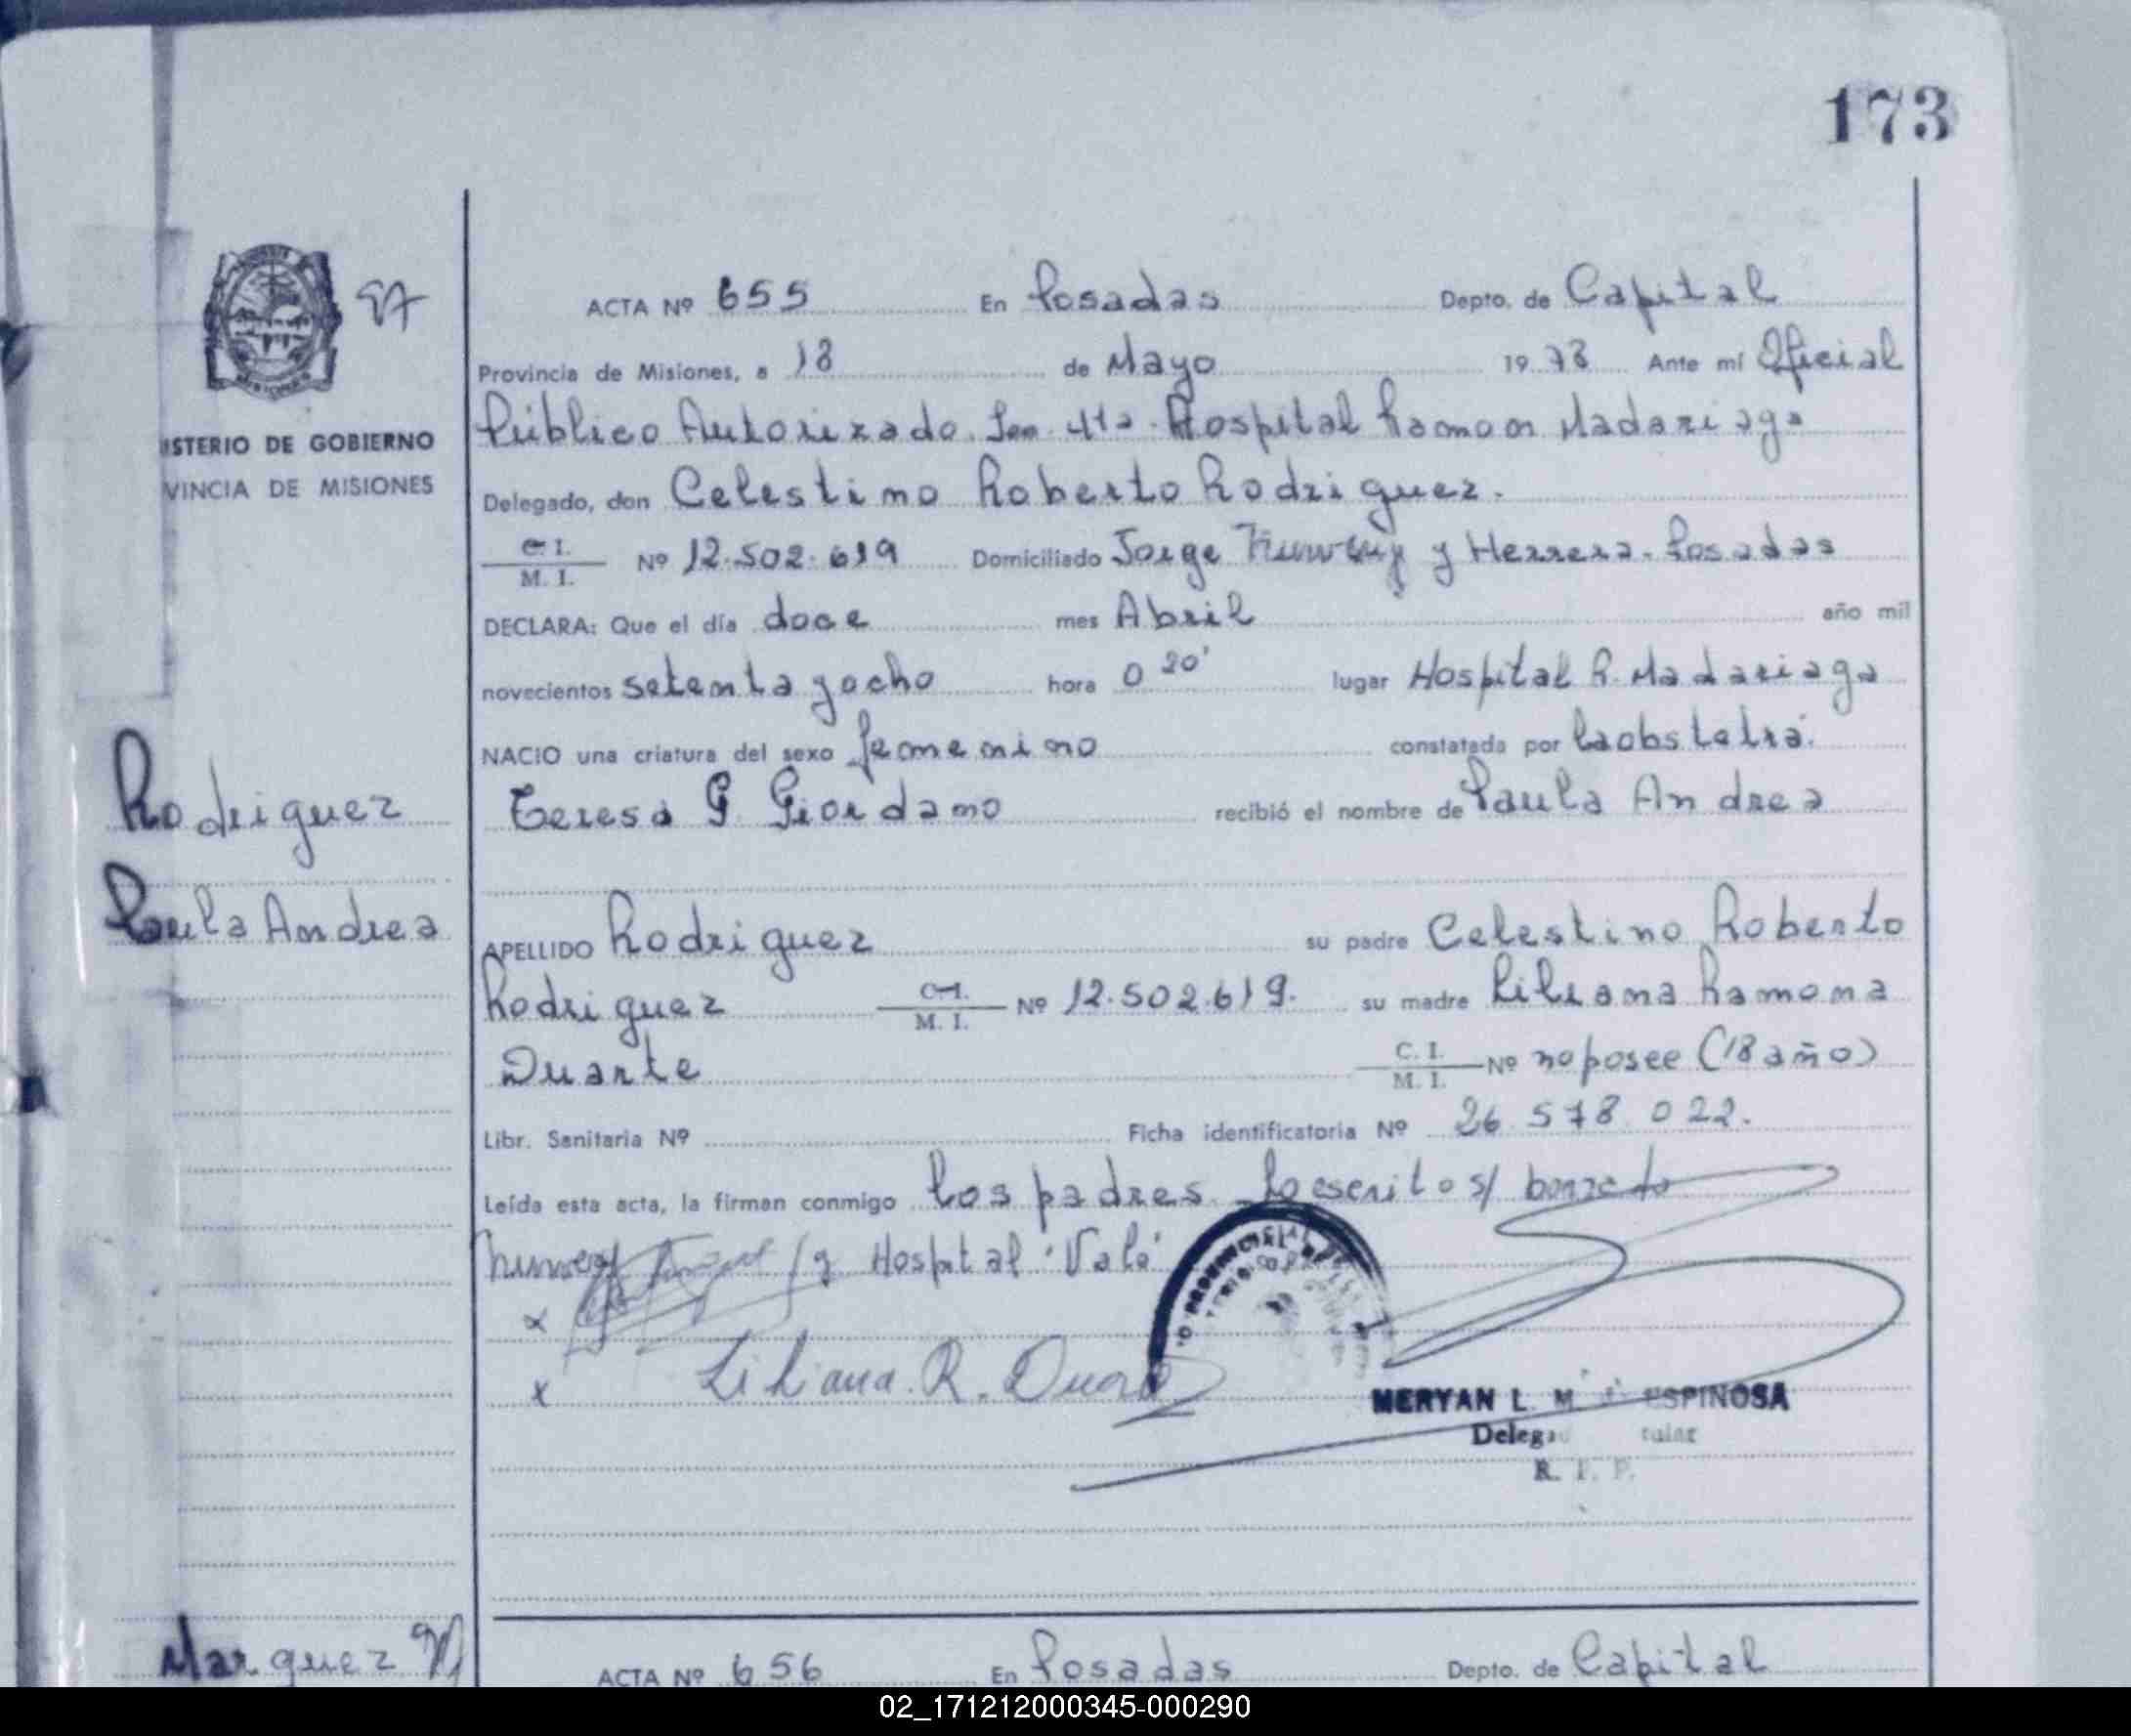 173
ACTA Nº 655 En Posadas Depto. de Capital
Provincia de Misiones, a 18 de Mayo 1978 Ante mí Oficial
Público Autorizado Sec. 4ta. Hospital Ramon Madariaga
ISTERIO DE GOBIERNO
VINCIA DE MISIONES
Delegado, don Celestino Roberto Rodriguez.
C. I. / M. I. Nº 12.502.619 Domiciliado Jorge y Herrera. Posadas
DECLARA: Que el día doce mes Abril año mil
novecientos setenta y ocho hora 0 20' lugar Hospital R. Madariaga
NACIO una criatura del sexo femenino constatada por la obstetra.
Teresa G. Giordano recibió el nombre de Paula Andrea
Rodriguez
Paula Andrea
APELLIDO Rodriguez su padre Celestino Roberto
Rodriguez C. I. / M. I. Nº 12.502.619. su madre Liliana Ramona
Duarte C. I. / M. I. Nº no posee (18 año)
Libr. Sanitaria Nº Ficha identificatoria Nº 26.578.022.
Leída esta acta, la firman conmigo los padres. Lo escrito s/ borrado
y Hospital "Vale"
x
x Liliana. R. Duarte
MERYAN L. M ESPINOSA
Delegad tular
R. P. P.
Marquez
ACTA Nº 656 En Posadas Depto. de Capital
02_171212000345-000290